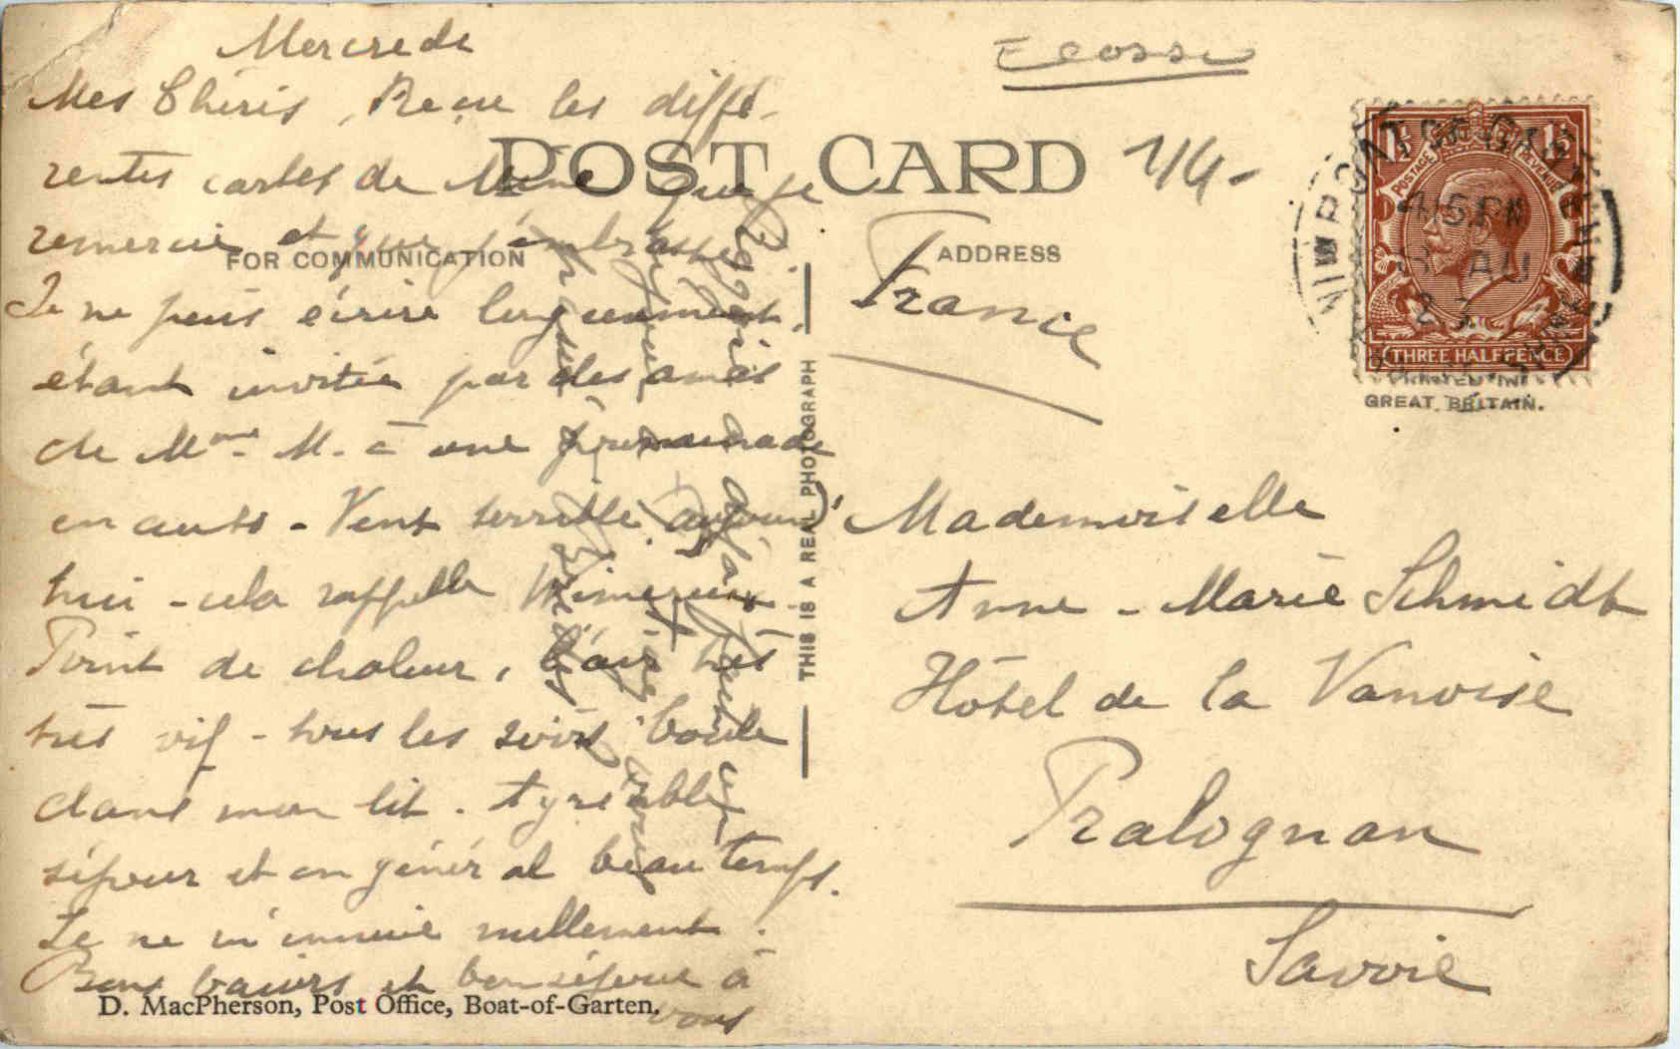 Mercredi
Mes Chéris, Reçu les diffé-
rentes cartes de Mème que je
remercie et que j'embrasse.
Je ne puis écrire longuement,
étant invitée par des amis
de Mme M. à une promenade
en auto - Vent terrible aujourd'
hui - cela rappelle Wimereux
Point de chaleur, l'air très
très vif - tous les soirs boule
dans mon lit. Agréable
séjour et en général beau temps.
Je ne m'ennuie nullement.
Bons baisers et bon séjour à
vous
Ecosse
POST CARD
1/4-
FOR COMMUNICATION
ADDRESS
THIS IS A REAL PHOTOGRAPH
France
Mademoiselle
Anne-Marie Schmidt
Hôtel de la Vanoise
Pralognan
Savoie
BOAT OF GARTEN
4 15 PM
AU
INVERNESS-SHIRE
POSTAGE REVENUE
THREE HALFPENCE
PRINTED IN
GREAT BRITAIN.
D. MacPherson, Post Office, Boat-of-Garten.